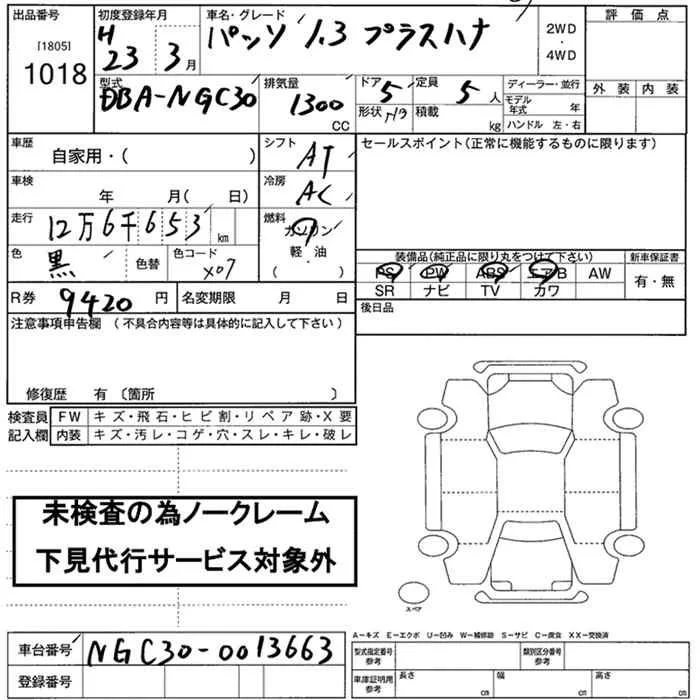 出品番号
[1805]
1018
初度登録年月
H 23 3月
車名・グレード
パッソ 1.3 プラスハナ
2WD
・
4WD
評価点
外装 内装
型式
DBA-NGC30
排気量
1300
CC
ドア 5
形状 H/B
定員 5人
積載 kg
ディーラー・並行
モデル年式 年
ハンドル 左・右
車歴
自家用・( )
車検
年 月( 日)
走行
12万6千653 km
色
黒
色替
色コード
X07
シフト
AT
冷房
AC
燃料
ガソリン
軽・油
( )
R券 9420 円
名変期限 月 日
セールスポイント(正常に機能するものに限ります)
装備品(純正品に限り丸をつけて下さい)
PS PW ABS エアB AW
SR ナビ TV カワ
新車保証書
有・無
後日品
注意事項申告欄 (不具合内容等は具体的に記入して下さい)
修復歴 有 〔箇所 〕
検査員
記入欄
FW キズ・飛石・ヒビ割・リペア跡・X要
内装 キズ・汚レ・コゲ・穴・スレ・キレ・破レ
未検査の為ノークレーム
下見代行サービス対象外
スペア
A−キズ E−エクボ U−凹み W−補修跡 S−サビ C−腐食 XX−交換済
車台番号 NGC30-0013663
登録番号
型式指定番号
参考
類別区分番号
参考
車庫証明用
参考
長さ cm
幅 cm
高さ cm